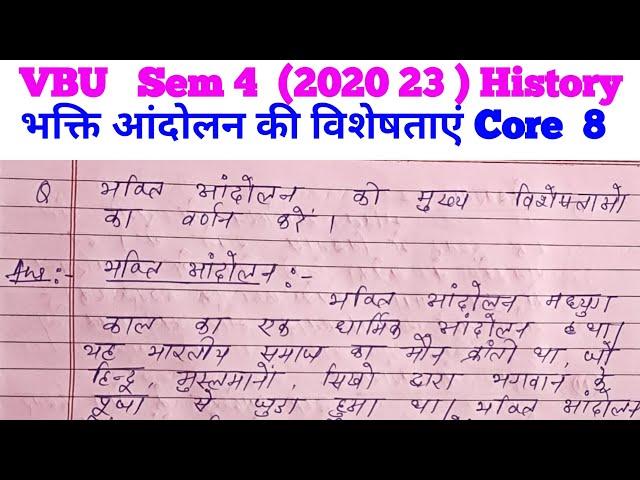 VBU Sem 4 (2020 23 ) History
भक्ति आंदोलन की विशेषताएं Core 8
Q भक्ति आंदोलन की मुख्य विशेषताओ
का वर्णन करें ।
Ans :- भक्ति आंदोलन :-
भक्ति आंदोलन मध्युग
काल का एक धार्मिक आंदोलन था।
यह भारतीय समाज का मौन क्रांती था, जो
हिन्दू, मुस्लमानों, सिखो द्वारा भगवान के
पूजा से जुडा हुआ था। भक्ति आंदोलन